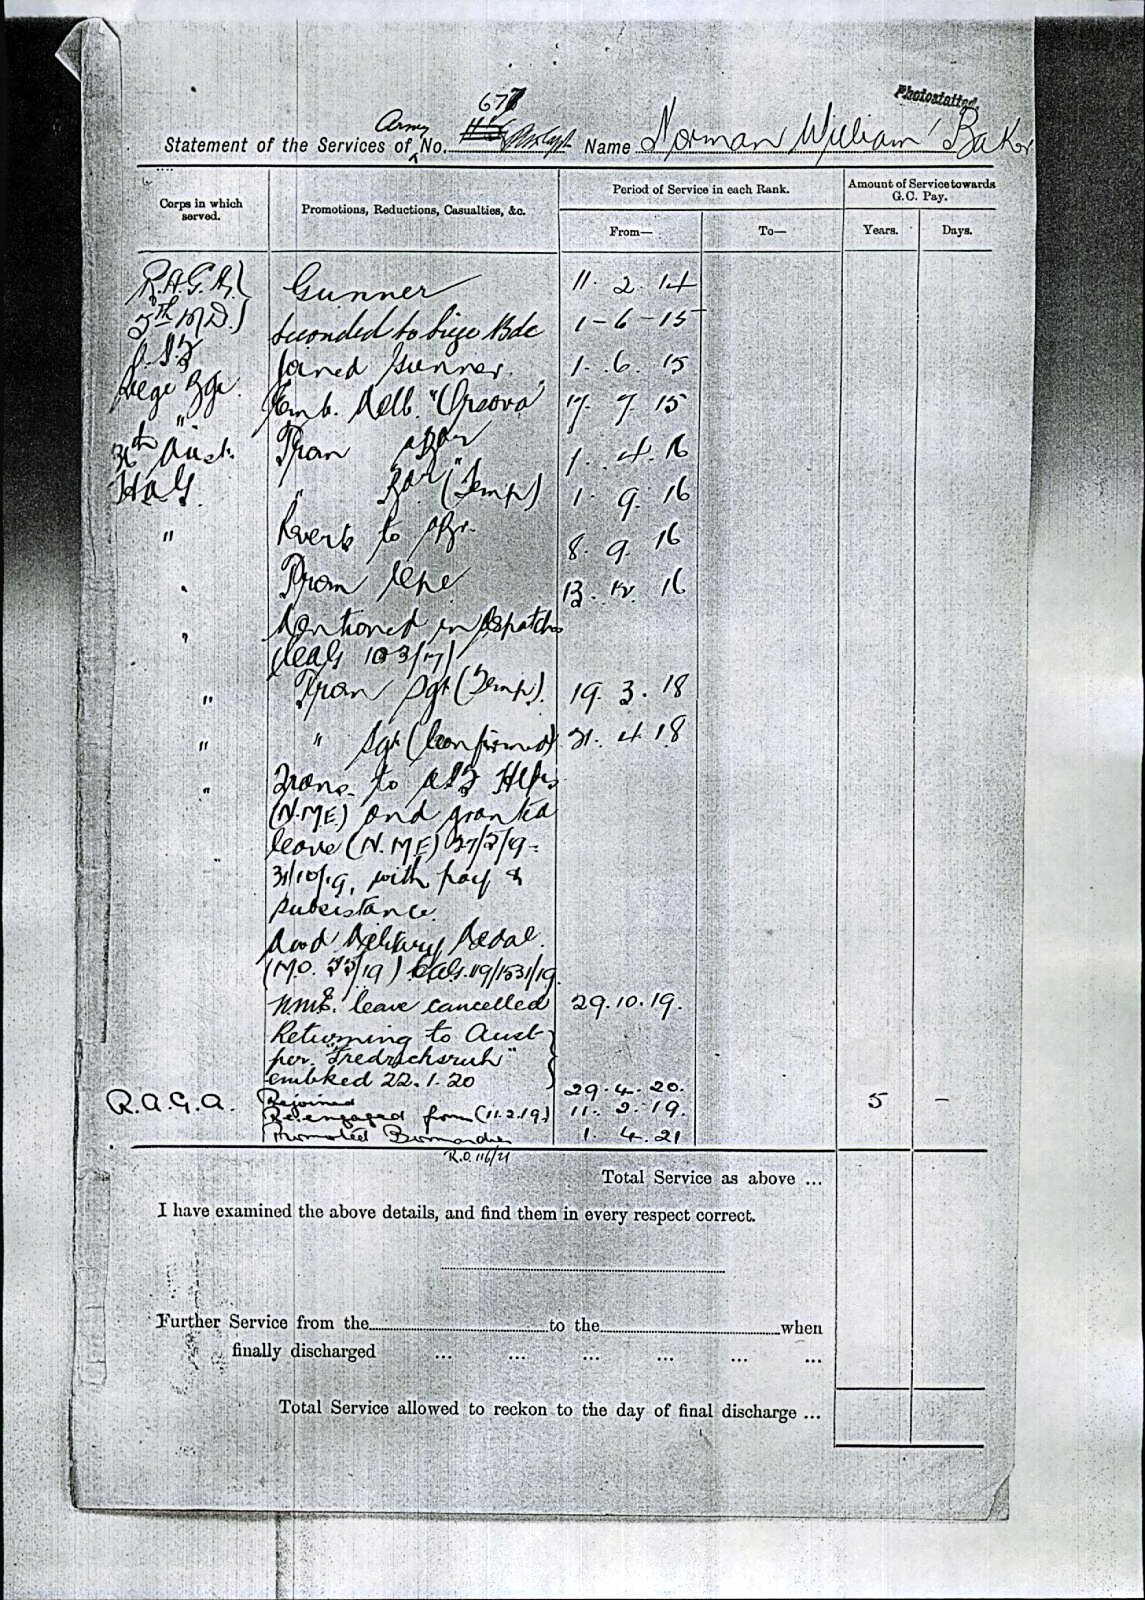 Photostatted.
Army 677
Statement of the Services of No. Name Norman William Baker
Corps in which served.
Promotions, Reductions, Casualties, &c.
Period of Service in each Rank.
Amount of Service towards G.C. Pay.
From—
To—
Years.
Days.
R.A.G.A. Gunner 11. 2. 14
5th M.D. seconded to Siege Bde 1-6-15
Joined Gunner. 1. 6. 15
Siege Bge. Emb. Melb. "Orsova" 17. 7. 15
36th Aust. Prom 1. 4. 16
H.A.G. " Bdr (Temp) 1. 9. 16
" Reverts to 8. 9. 16
" Prom 13. 12. 16
" Mentioned in Dispatches
" Prom Sgt (Temp). 19. 3. 18
" " Sgt (Confirmed) 21. 4. 18
" Trans. to Hdqrs
(N.M.E.) and granted
leave (N.M.E.)
31/10/19, with pay &
subsistance.
Awd Military Medal.
N.M.E. leave cancelled 29. 10. 19.
Returning to Aust
per. "Fredrichsruh"
embked 22. 1. 20
R.A.G.A. Rejoined 29. 4. 20. 5 –
Re-engaged from (11.2.19) 11. 2. 19.
Promoted Bombardier 1. 4. 21
R.O. 116/21
Total Service as above ...
I have examined the above details, and find them in every respect correct.
Further Service from the to the when
finally discharged ... ... ... ... ... ...
Total Service allowed to reckon to the day of final discharge ...